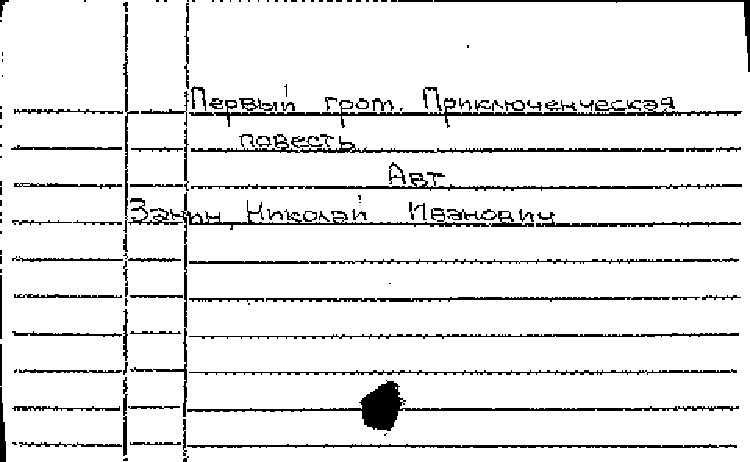 Первый грот. Приключенческая
повесть
Авт.
Занин, Николай Иванович